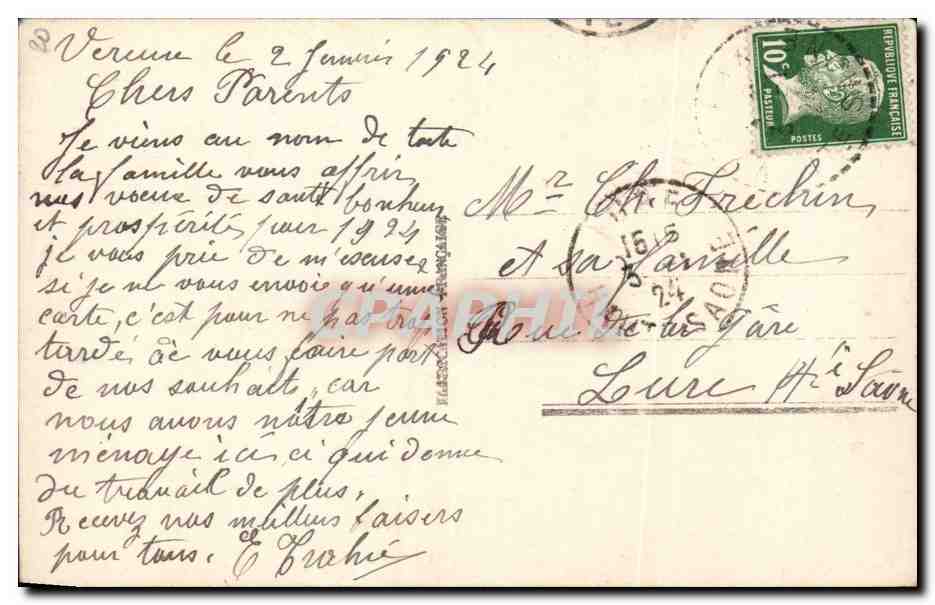 20
le 2 Janvier 1924
Chers Parents
Je viens au nom de toute
la famille vous offrir
nos voeux de santé bonheur
et prospérité pour 1924
je vous prie de m'escuser
si je ne vous envoie qu'une
carte, c'est pour ne pas trop
tardé à vous faire part
de nos souhaits, car
nous avons nôtre jeune
ménage ici qui donne
du travail de plus.
Recevez nos meilleurs baisers
pour tous.
FABRICATION FRANÇAISE
REPVBLIQUE FRANÇAISE
10c
PASTEUR
POSTES
Mr Ch. Frechin
et sa famille
Rue de la Gâre
Lure Hte Saône
LURE
16 15
5
24
SAONE
GRAPHI